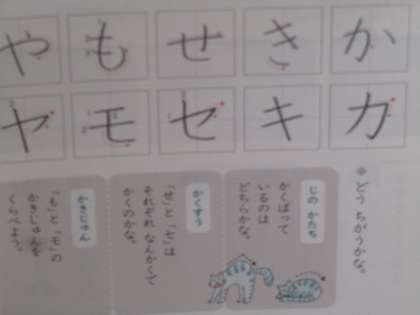 か き せ も や
カ キ セ モ ヤ
※どう ちがうかな。
じの かたち
かくばって
いるのは
どちらかな。
かくすう
「せ」と「セ」は
それぞれ なんかくで
かくのかな。
かきじゅん
「も」と「モ」の
かきじゅんを
くらべよう。